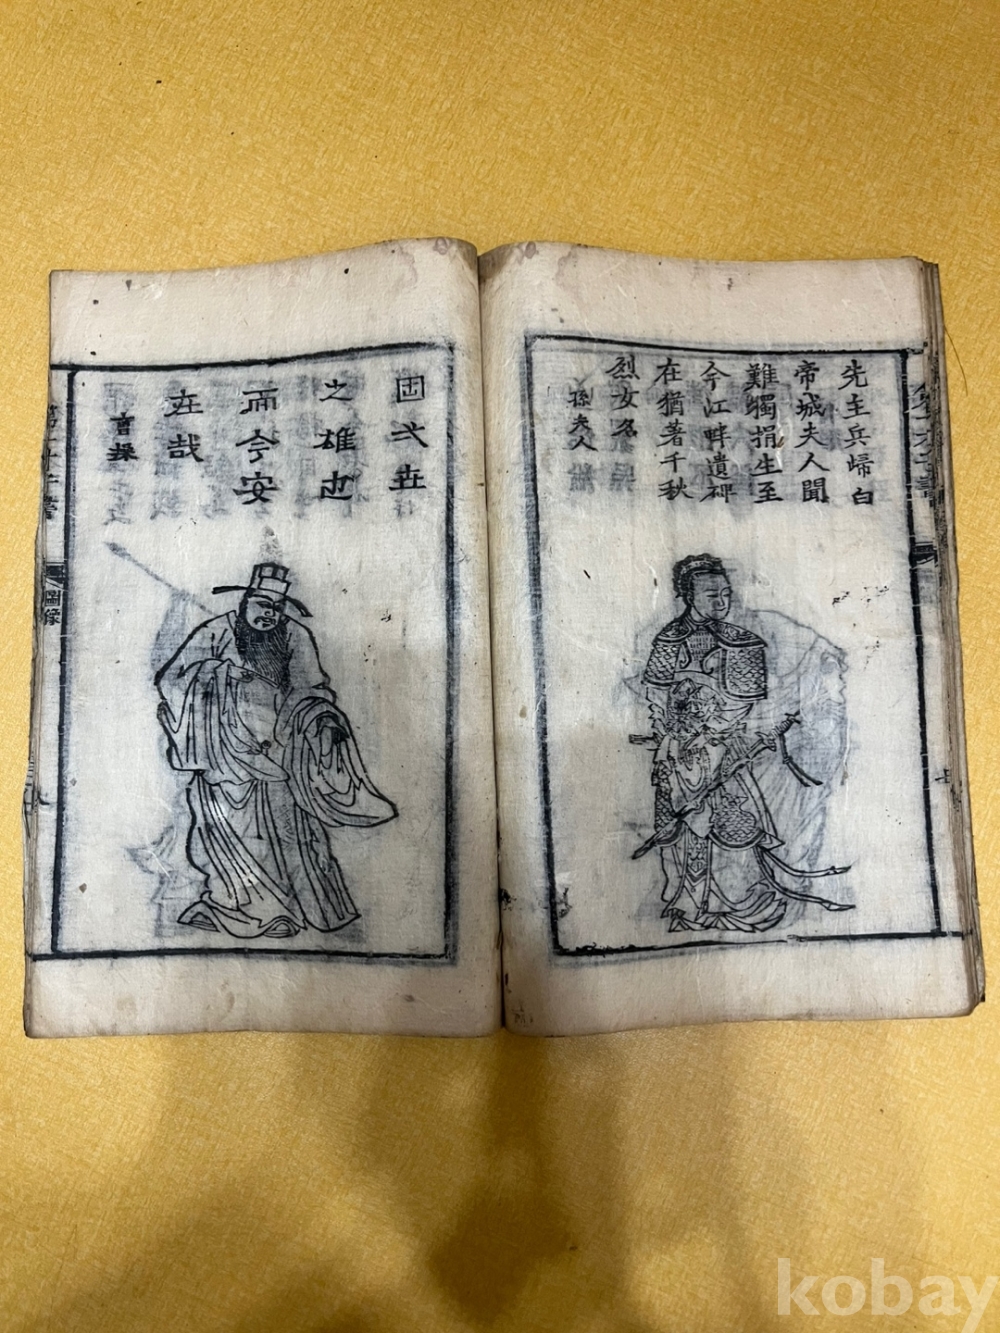 先主兵歸白
帝城夫人聞
難獨捐生至
今江畔遺碑
在猶著千秋
烈女名
孫夫人
第一才子書
固弌世
之雄也
而今安
在哉
曹操
第一才子書
圖像
kobay